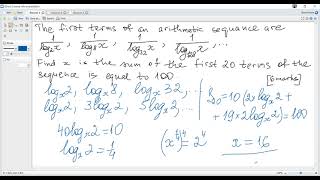 The first terms of an arithmetic sequence are
1/log₂x, 1/log₈x, 1/log₃₂x, 1/log₁₂₈x, ...
Find x is the sum of the first 20 terms of the
sequence is equal to 100
[6 marks]
logₓ2, logₓ8, logₓ32, ...
logₓ2, 3logₓ2, 5logₓ2, ...
S₂₀=10(2×logₓ2+
+19×2logₓ2)=100
40logₓ2=10
logₓ2=1/4
(x^(1/4))⁴=2⁴
x=16